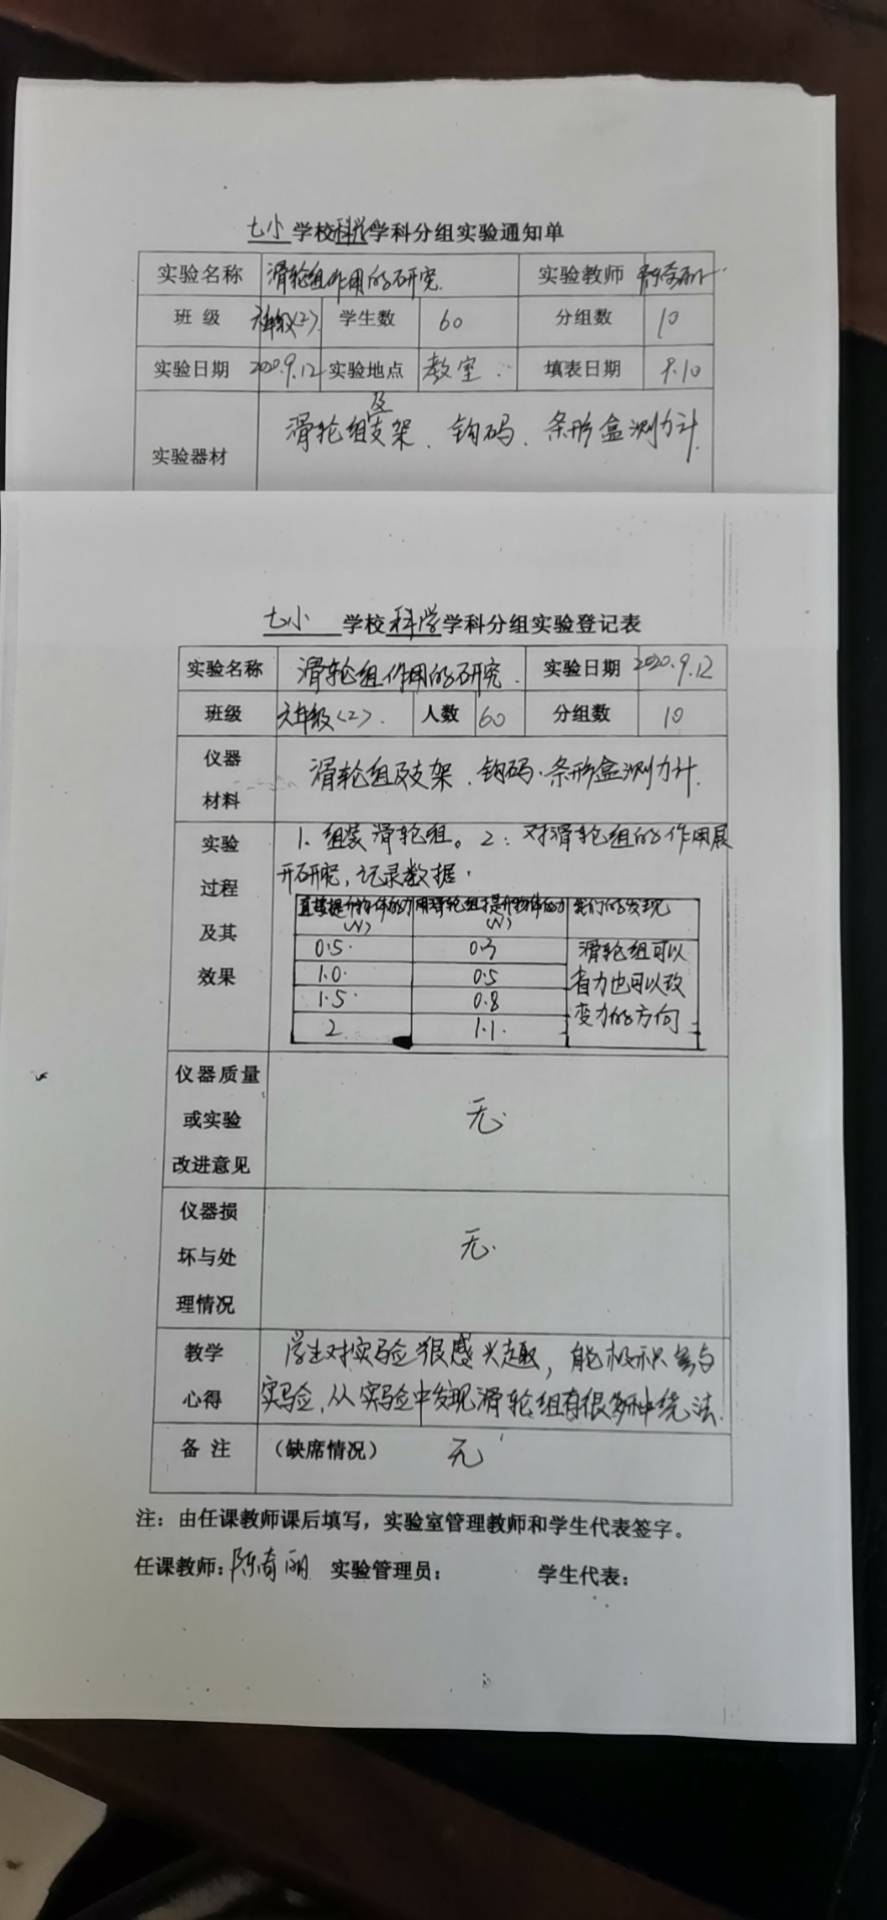 七小 学校科学学科分组实验通知单
实验名称 滑轮组作用的研究. 实验教师
班 级 六年级(2) 学生数 60 分组数 10
实验日期 2020.9.12 实验地点 教室. 填表日期 9.10
及
实验器材 滑轮组支架、钩码、条形盒测力计
七小 学校 科学 学科分组实验登记表
实验名称 滑轮组作用的研究. 实验日期 2020.9.12
班级 六年级<2>. 人数 60 分组数 10
仪器
材料
滑轮组及支架、钩码、条形盒测力计.
实验
过程
及其
效果
1、组装滑轮组。2:对滑轮组的作用展
开研究,记录数据.
直接提升物体的力(N) 用滑轮组提升物体的力(N) 我们的发现
0.5. 0.3 滑轮组可以
1.0. 0.5 省力也可以改
1.5. 0.8 变力的方向
2 1.1.
仪器质量
或实验
改进意见
无.
仪器损
坏与处
理情况
无.
教学
心得
学生对实验很感兴趣,能积极参与
实验,从实验中发现滑轮组有很多种绕法.
备 注 (缺席情况) 无
注：由任课教师课后填写，实验室管理教师和学生代表签字。
任课教师：陈奇丽 实验管理员： 学生代表：